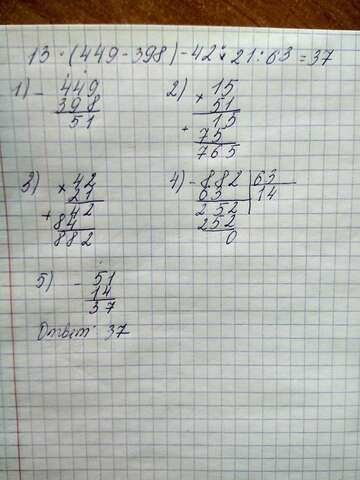 13 · (449 - 398) - 42 · 21 : 63 = 37
1) - 449
398
51
2) × 15
51
+ 15
75
765
3) × 42
21
+ 42
84
882
4) - 882 | 63
63 | 14
252
252
0
5) - 51
14
37
Ответ: 37